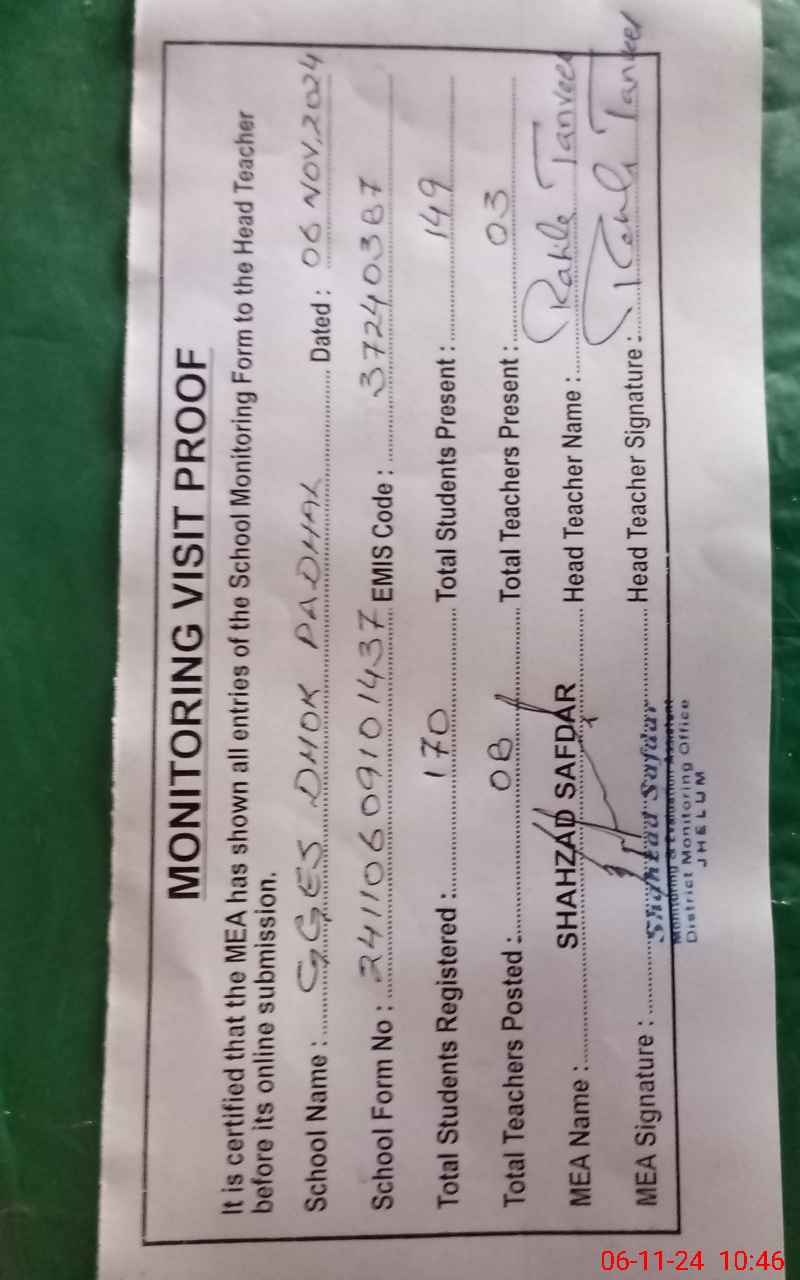 MONITORING VISIT PROOF
It is certified that the MEA has shown all entries of the School Monitoring Form to the Head Teacher
before its online submission.
School Name : GGES DHOK PADHAL Dated : 06 NOV, 2024
School Form No : 24110609101437 EMIS Code : 37240387
Total Students Registered : 170 Total Students Present : 149
Total Teachers Posted : 08 Total Teachers Present : 03
MEA Name : SHAHZAD SAFDAR Head Teacher Name : Tanveer
MEA Signature : Head Teacher Signature : Tanveer
Shahzad Safdar
Monitoring & Evaluation Assistant
District Monitoring Office
JHELUM
06-11-24 10:46